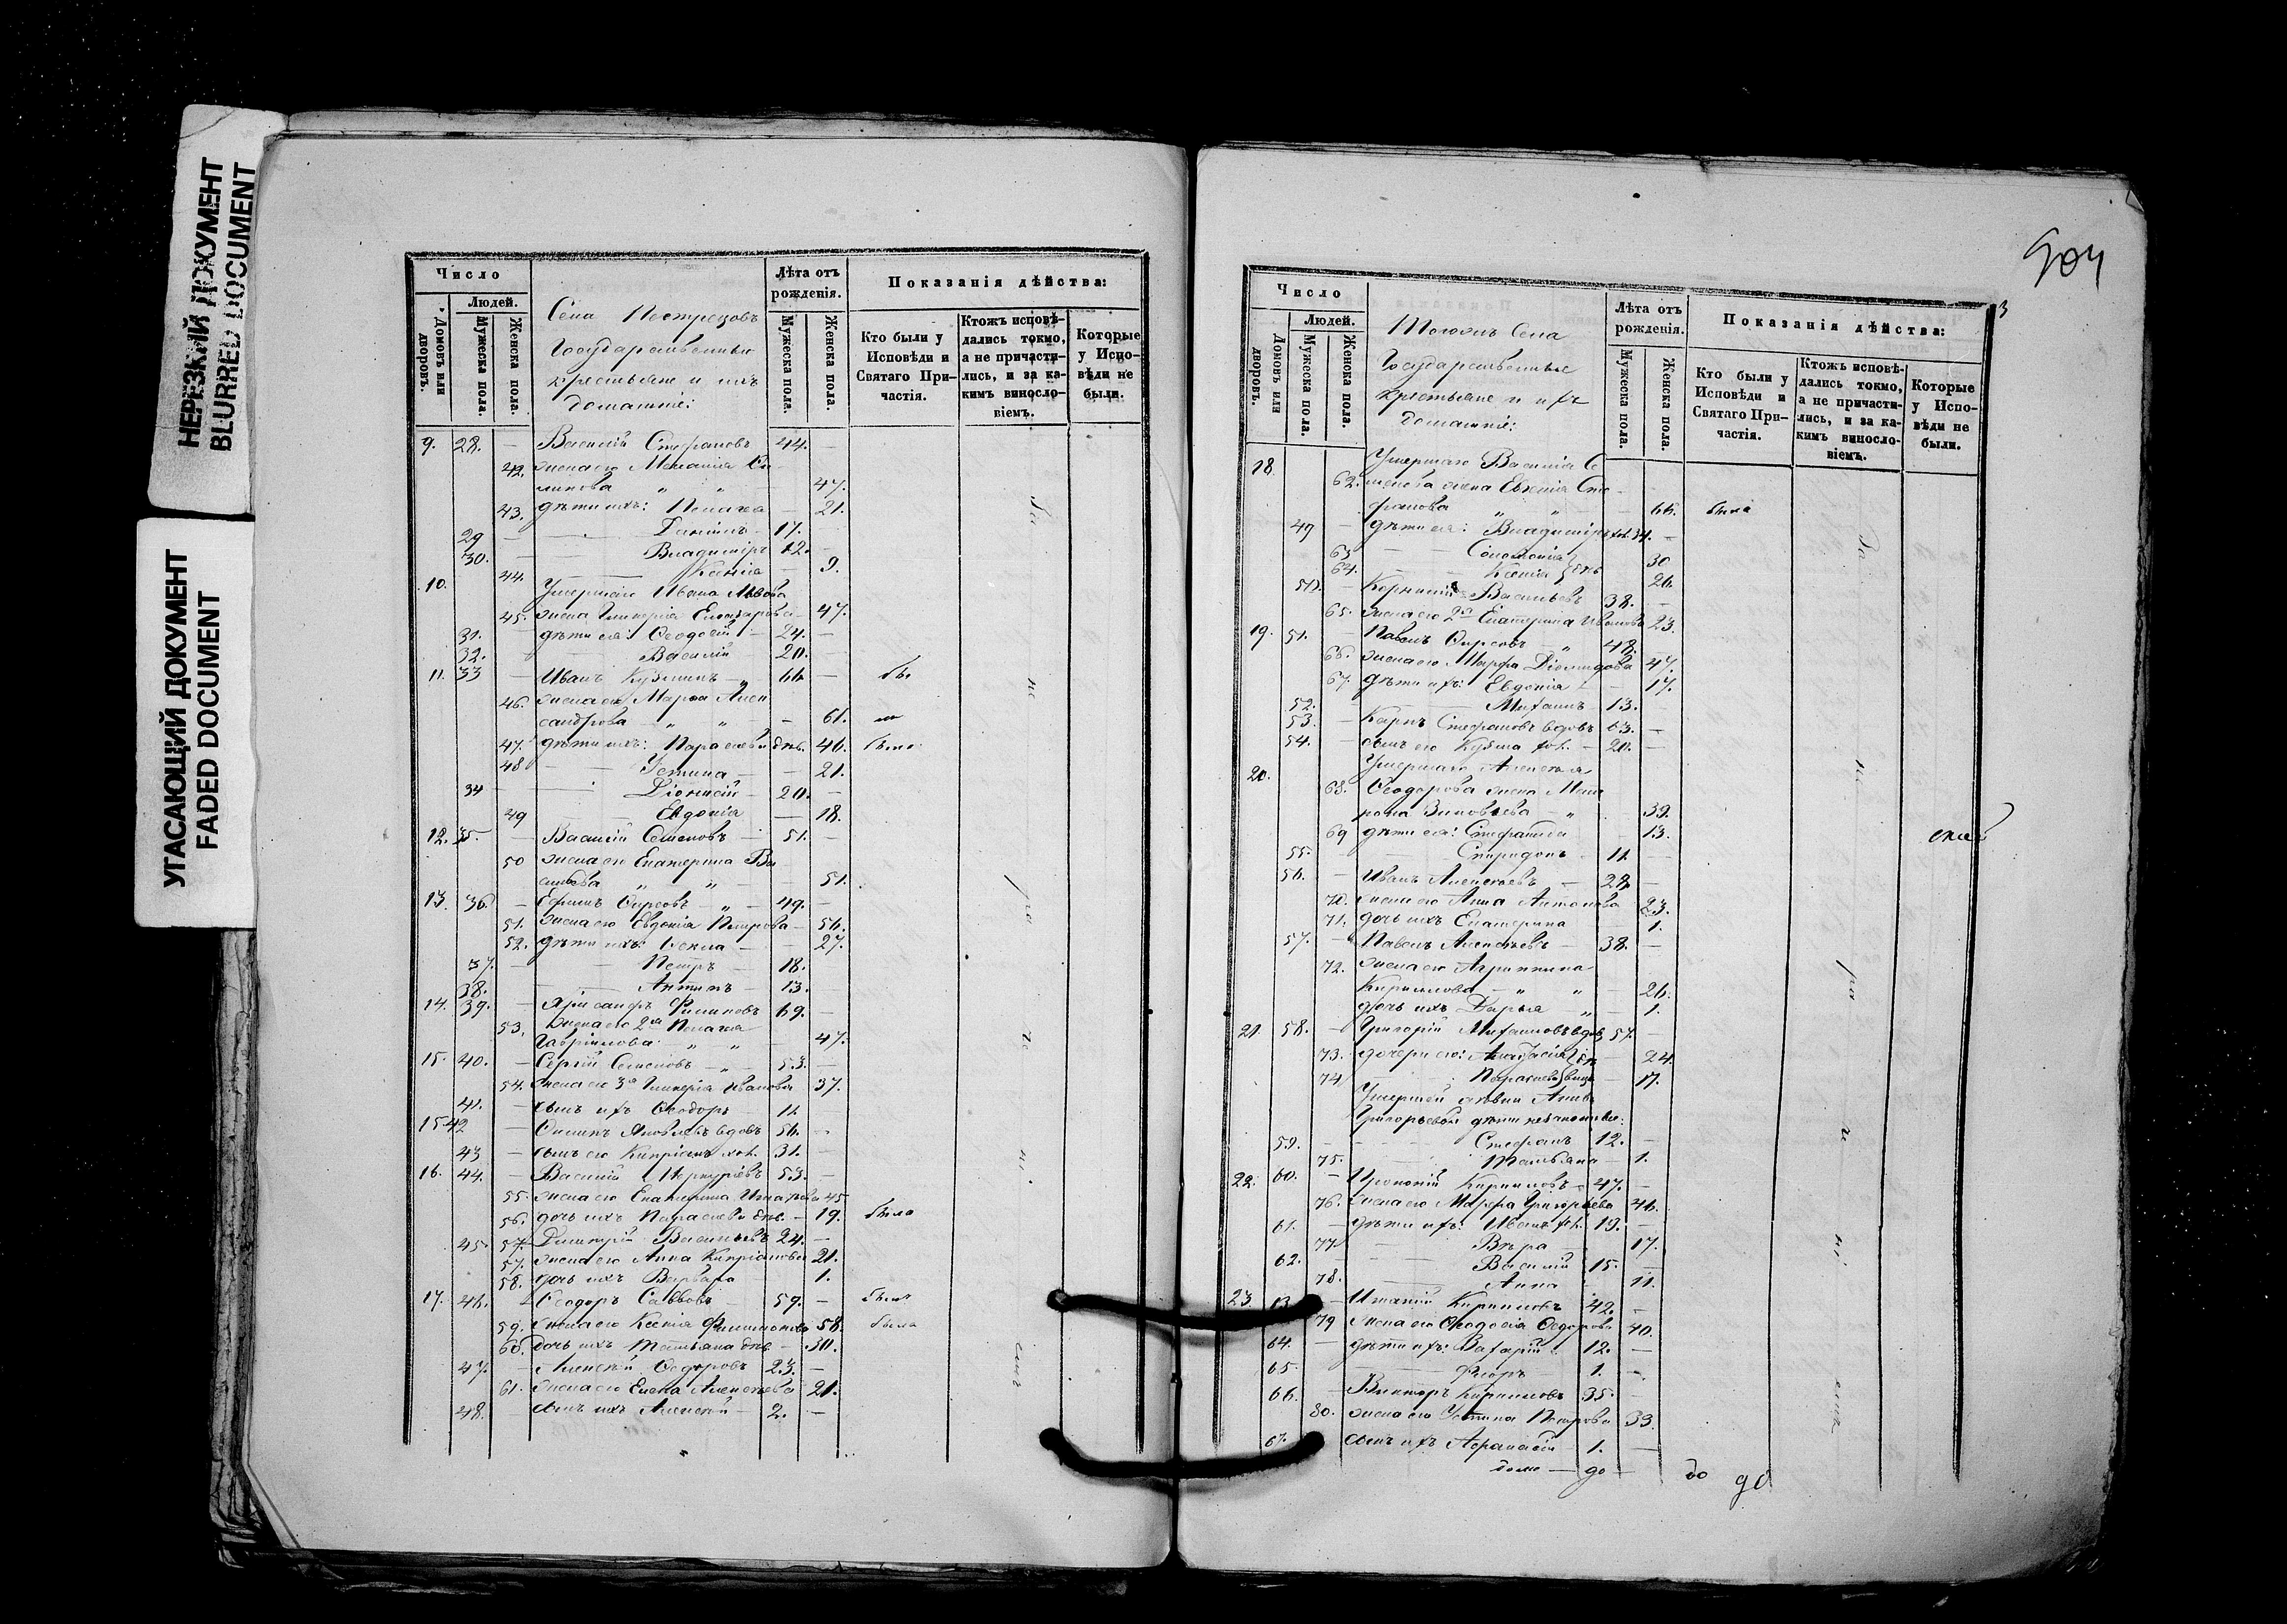 НЕРЕЗКИЙ ДОКУМЕНТ
BLURRED DOCUMENT
УГАСАЮЩИЙ ДОКУМЕНТ
FADED DOCUMENT
Число
Людей.
Домовъ или дворовъ.
Мужеска пола.
Женска пола.
Села
Государственные
крестьяне и ихъ
домашніе:
Лѣта отъ рожденія.
Мужеска пола.
Женска пола.
Показанія дѣйства:
Кто были у Исповѣди и Святаго При-частія.
Ктожъ исповѣ-дались токмо, а не причасти-лись, и за ка-кимъ винosло-віемъ.
Которые у Испо-вѣди не были.
9. 28. — Василій Стефановъ 44. —
42. жена его Меланія
47.
43. дѣти ихъ: Пелагіа — 21.
29 — Даніилъ 17.
30. — Владиміръ 12. —
44. — Ксенія — 9.
10. Умершаго Ивана Львова
45. жена Гликерія Елеазарова — 47.
31. дѣти ея: Ѳеодосій — 24. —
32. Василій — 20. —
11. 33 — Иванъ Кузминъ — „ 66 —
46. жена его Марѳа Алек
сандрова „ „ — 61.
47. дѣти ихъ: Параскева дѣв. 46. была
48 — Устина — 21.
34 — Діонисій — 20. —
49 Евдокія — 18.
12. 35 — Василій Семеновъ — 51. —
50 жена его Екатерина Ва
сильева „ „ — 51.
13. 36. — Ефимъ Ѳирсовъ — „ — 49. —
51. жена его Евдокія Петрова — 56.
52. дѣти ихъ: Ѳекла — 27.
37. — Петръ 18.
38. — Антипъ — 13. —
14. 39. — Филиповъ 69. —
53. жена его 2я Пелагіа
Гавриилова „ „ — 47.
15. 40. — Сергій Семеновъ — „ — 53. —
54. жена его 3я Гликерія Иванова 37.
41. — сынъ ихъ Ѳеодоръ 11.
15 42 — Филипъ Яковлевъ вдовъ 56. —
43 — сынъ его Кипріанъ хол. 31. —
16. 44. — Василій Меркурьевъ 53. —
55. жена его Екатерина Игнатьева 45
56. дочь ихъ Параскева дѣв. — 19. была
45. 57. Димитрій Васильевъ 24. —
57. жена его Анна Кипріанова 21.
58. дочь ихъ Варвара 1.
17. 46. — Ѳеодоръ Саввовъ 59. — былъ
59. жена его Ксенія Филимонова 58. была
60. дочь ихъ Татьяна дѣв — 30.
47. — Алексѣй Ѳедоровъ 23. —
61. жена его Елена Алексѣева 21.
48. — сынъ ихъ Алексѣй 2. —
904
3
Число
Людей.
Домовъ или дворовъ.
Мужеска пола.
Женска пола.
Тогожъ Села
Государственные
крестьяне и ихъ
домашніе:
Лѣта отъ рожденія.
Мужеска пола.
Женска пола.
Показанія дѣйства:
Кто были у Исповѣди и Святаго При-частія.
Ктожъ исповѣ-дались токмо, а не причасти-лись, и за ка-кимъ виносло-віемъ.
Которые у Испо-вѣди не были.
18. Умершаго Василія Се
62. менова жена Евгенія Сте
фанова „ „ — 66. была
49 — дѣти ея: Владиміръ хол. 34. —
63 — Соломонія 30
64. — Ксенія дѣв 26.
50. — Корнилій Васильевъ 38. —
65. жена его 2я Екатерина Иванова 23.
19. 51. — Павелъ Ѳирсовъ — „ 48. —
66. жена его Марѳа Діомидова 47.
67. дѣти ихъ: Евдокія — 17.
52. — Михаилъ 13. —
53. — Карпъ Стефановъ вдовъ 63. —
54. — сынъ его Кузма хол. — 20. —
20. Умершаго Алексѣя
68. Ѳеодорова жена Мат
рона Зиновьева „ 39.
69 дѣти ея: Стефанида — 13.
55. — Спиридонъ 11. —
56. — Иванъ Алексѣевъ — 28. —
70. жена его Анна Антонова 23.
71. дочь ихъ Екатерина 1.
57. — Павелъ Алексѣевъ — 38. —
72. жена его Агрипина
Кирилова — „ „ — 26.
дочь ихъ Дарья „ — 1.
21. 58. — Григорій Михаиловъ вдов 57. —
73. дочери его: Анастасія дѣ — 24.
74 — Параскева вицы — 17.
Умершей вдовы Анны
Григорьевой дѣти незаконные:
59. — Стефанъ 12. —
75. Татьяна — 1.
22. 60. — Кириловъ — 47. —
76. жена его Марѳа Григорьева 46.
61. — дѣти ихъ: Иванъ хол. 19. —
77 — Вѣра — 17.
62. — Василій 15. —
78. — Анна 11.
23. — Игнатій Кириловъ 42. —
79 жена его Ѳеодосія Ѳедорова 40.
64. — дѣти ихъ: Захарій 12. —
65 — Флоръ 1. —
66. — Викторъ Кириловъ 35. —
80. жена его Устина Петрова 33.
67. сынъ ихъ Афанасій 1. —